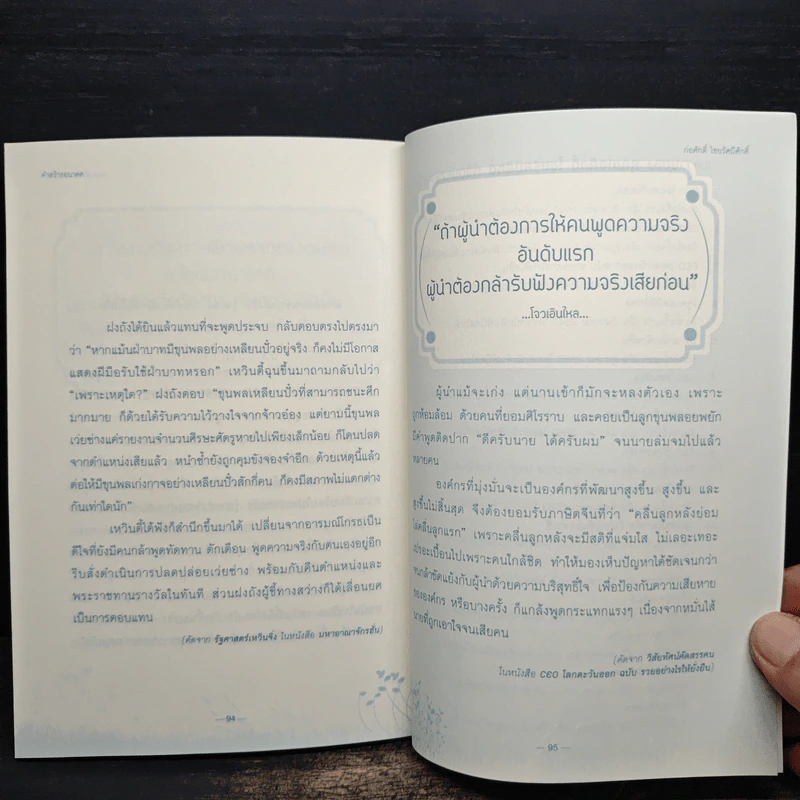 คำสร้างอนาคต
ฝงถังได้ยินแล้วแทนที่จะพูดประจบ กลับตอบตรงไปตรงมา
ว่า “หากแม้นฝ่าบาทมีขุนพลอย่างเหลียนปั๋วอยู่จริง ก็คงไม่มีโอกาส
แสดงฝีมือรับใช้ฝ่าบาทหรอก” เหวินตี้ฉุนขึ้นมาถามกลับไปว่า
“เพราะเหตุใด?” ฝงถังตอบ “ขุนพลเหลียนปั๋วที่สามารถชนะศึก
มากมาย ก็ด้วยได้รับความไว้วางใจจากจ้าวอ๋อง แต่ยามนี้ขุนพล
เว่ยซ่างแค่รายงานจำนวนศีรษะศัตรูหายไปเพียงเล็กน้อย ก็โดนปลด
จากตำแหน่งเสียแล้ว หนำซ้ำยังถูกคุมขังจองจำอีก ด้วยเหตุนี้แล้ว
ต่อให้มีขุนพลเก่งกาจอย่างเหลียนปั๋วสักกี่คน ก็คงมีสภาพไม่แตกต่าง
กันเท่าใดนัก”
เหวินตี้ได้ฟังก็สำนึกขึ้นมาได้ เปลี่ยนจากอารมณ์โกรธเป็น
ดีใจที่ยังมีคนกล้าพูดทัดทาน ตักเตือน พูดความจริงกับตนเองอยู่อีก
รีบสั่งดำเนินการปลดปล่อยเว่ยซ่าง พร้อมกับคืนตำแหน่งและ
พระราชทานรางวัลในทันที ส่วนฝงถังผู้ชี้ทางสว่างก็ได้เลื่อนยศ
เป็นการตอบแทน
(คัดจาก รัฐศาสตร์เหวินจิ่ง ในหนังสือ มหาอาณาจักรฮั่น)
— 94 —
ก่อศักดิ์ ไชยรัศมีศักดิ์
“ถ้าผู้นำต้องการให้คนพูดความจริง
อันดับแรก
ผู้นำต้องกล้ารับฟังความจริงเสียก่อน”
...โจวเอินไหล...
ผู้นำแม้จะเก่ง แต่นานเข้าก็มักจะหลงตัวเอง เพราะ
ถูกห้อมล้อม ด้วยคนที่ยอมศิโรราบ และคอยเป็นลูกขุนพลอยพยัก
มีคำพูดติดปาก “ดีครับนาย ได้ครับผม” จนนายล่มจมไปแล้ว
หลายคน
องค์กรที่มุ่งมั่นจะเป็นองค์กรที่พัฒนาสูงขึ้น สูงขึ้น และ
สูงขึ้นไม่สิ้นสุด จึงต้องยอมรับภาษิตจีนที่ว่า “คลื่นลูกหลังย่อม
ไล่คลื่นลูกแรก” เพราะคลื่นลูกหลังจะมีสติที่แจ่มใส ไม่เลอะเทอะ
เปรอะเปื้อนไปเพราะคนใกล้ชิด ทำให้มองเห็นปัญหาได้ชัดเจนกว่า
จนกล้าขัดแย้งกับผู้นำด้วยความบริสุทธิ์ใจ เพื่อป้องกันความเสียหาย
ขององค์กร หรือบางครั้ง ก็แกล้งพูดกระแทกแรงๆ เนื่องจากหมั่นไส้
นายที่ถูกเอาใจจนเสียคน
(คัดจาก วิสัยทัศน์คัดสรรคน
ในหนังสือ CEO โลกตะวันออก ฉบับ รวยอย่างไรให้ยั่งยืน)
— 95 —